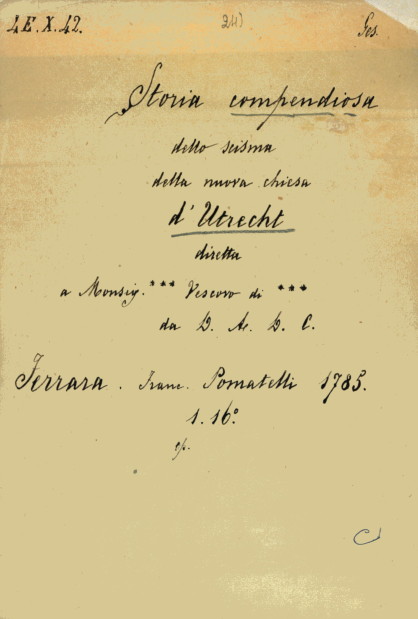 4E.X.42. 243 Ges.
Storia compendiosa
dello scisma
della nuova chiesa
d'Utrecht
diretta
a Monsig. *** Vescovo di ***
da D. A. D. C.
Ferrara. Franc. Pomatelli 1785.
1. 16°